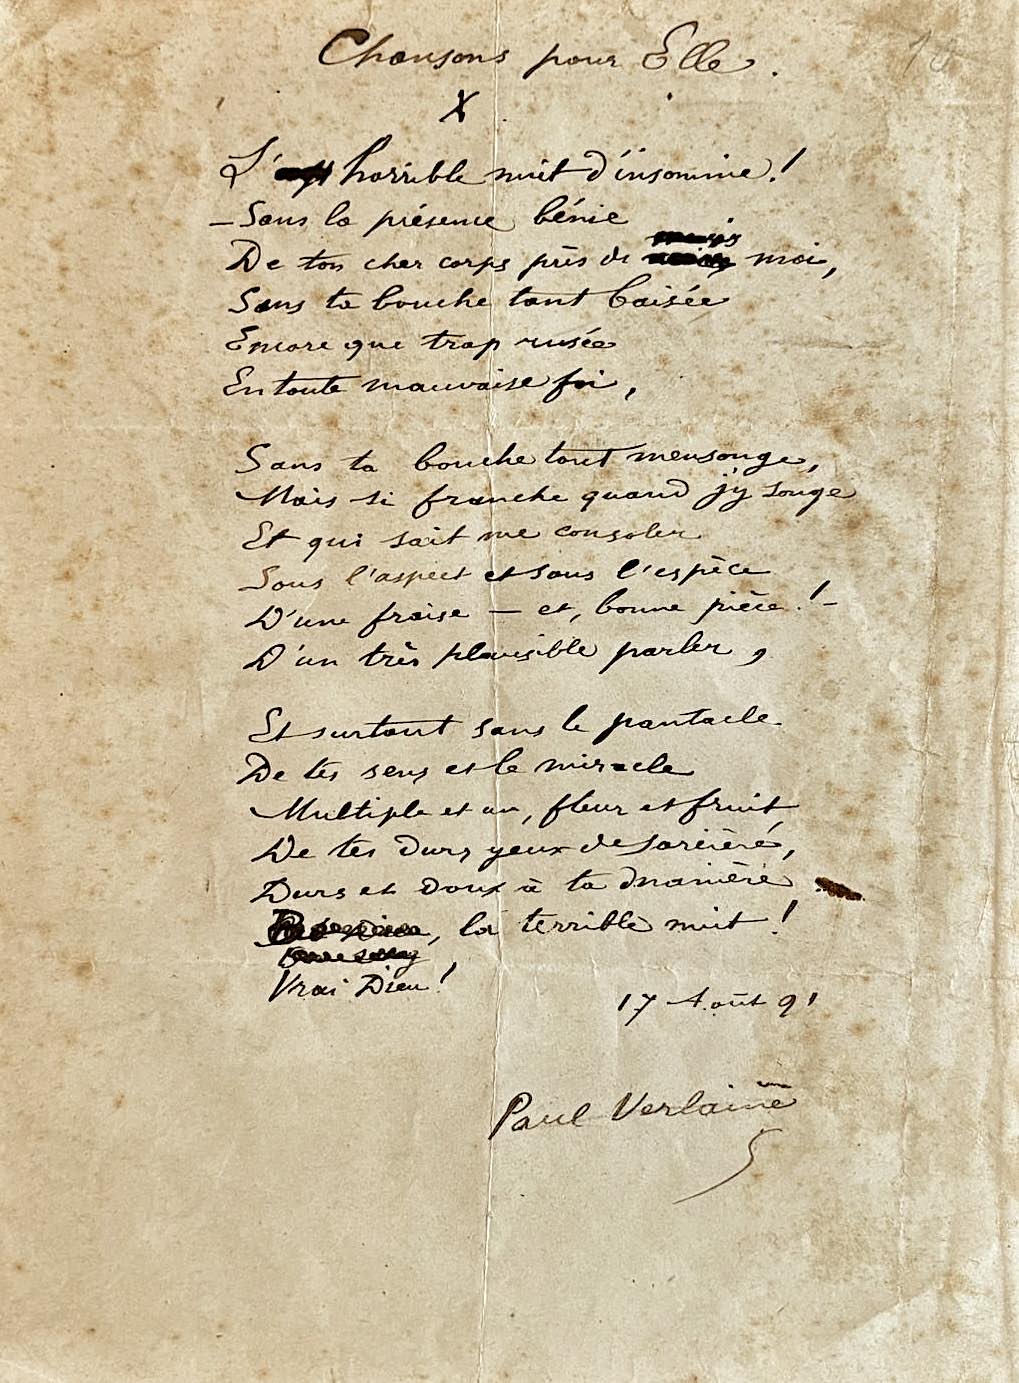 Chansons pour Elle.
X
L' horrible nuit d'insomnie!
– Sans la présence bénie
De ton cher corps près de moi,
Sans ta bouche tant baisée
Encore que trop rusée
En toute mauvaise foi,
Sans ta bouche tout mensonge,
Mais si franche quand j'y songe
Et qui sait me consoler
Sous l'aspect et sous l'espèce
D'une fraise – et, bonne pièce! –
D'un très plausible parler,
Et surtout sans le pantacle
De tes sens et le miracle
Multiple et un, fleur et fruit,
De tes durs yeux de sorcière,
Durs et doux à ta manière
, la terrible nuit!
Vrai Dieu!
17 Août 91
Paul Verlaine